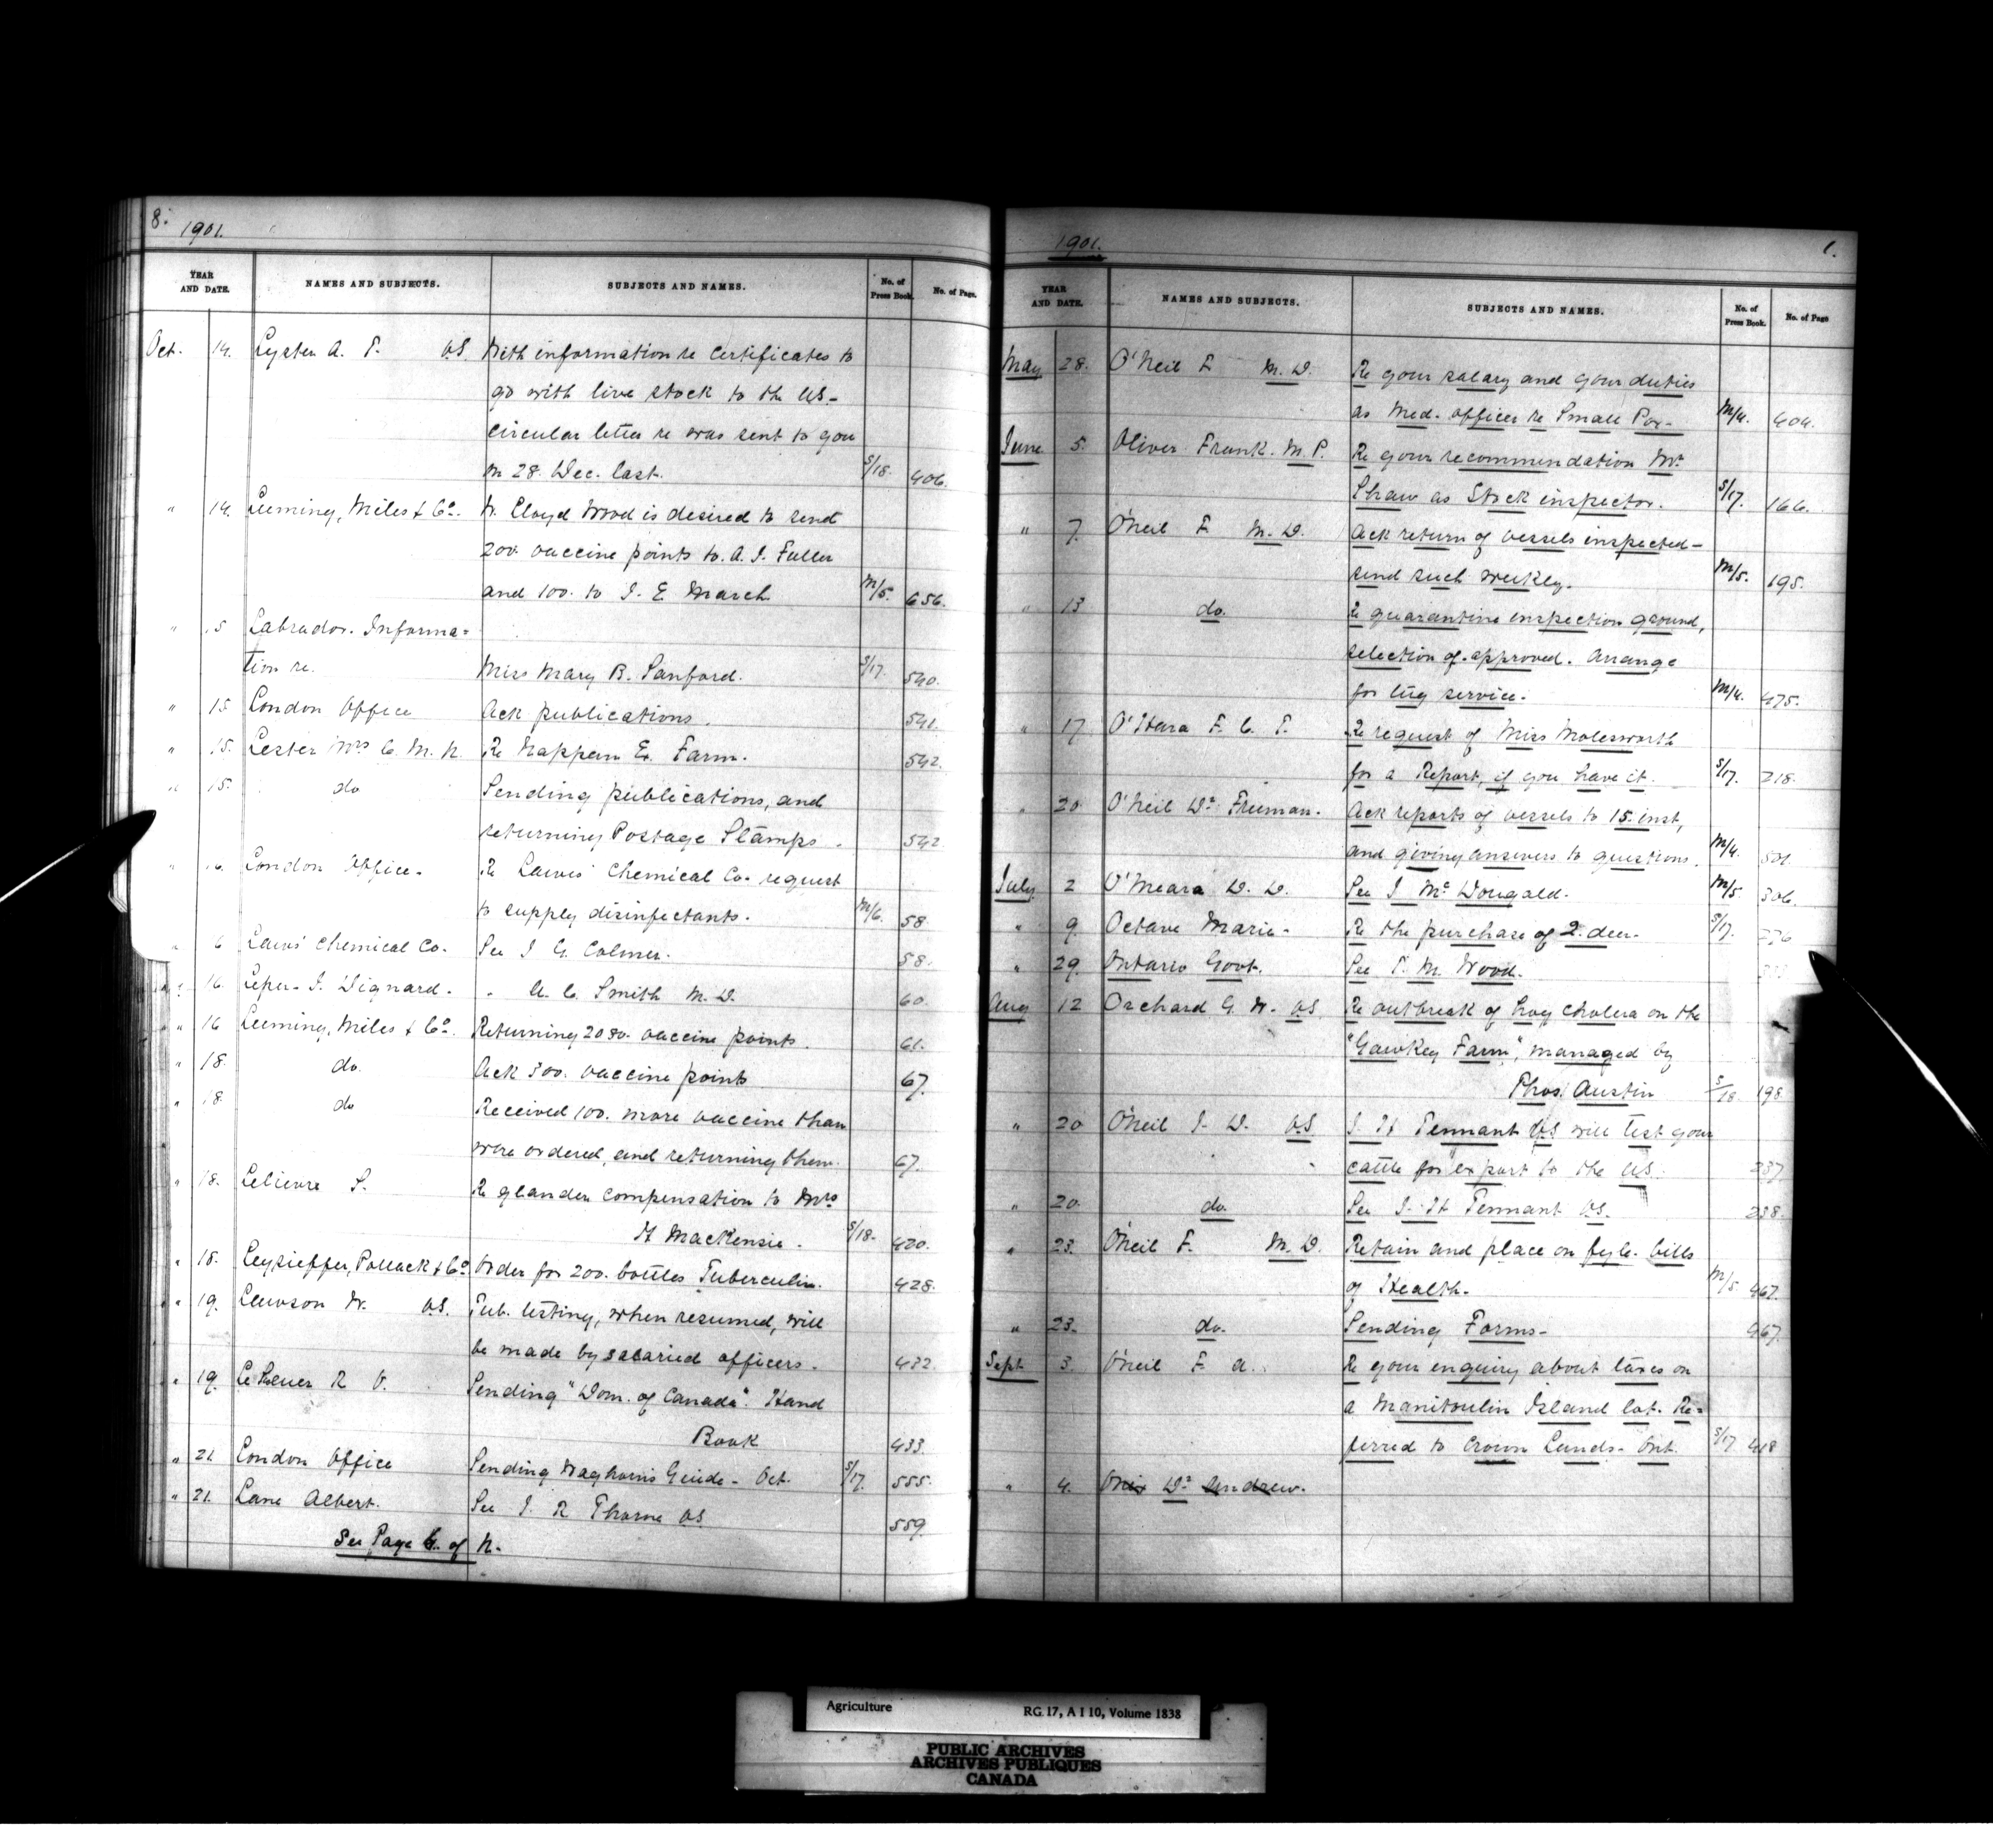 8. 1901.
YEAR AND DATE. NAMES AND SUBJECTS. SUBJECTS AND NAMES. No. of Press Book. No. of Page.
Oct. 14. Lyster A. T. V.S. With information re Certificates to
go with live stock to the U.S.-
Circular letter re was sent to you
on 28. Dec. last. S/18. 406.
" 14. Leeming, Miles & Co. W. Lloyd Wood is desired to send
200. vaccine points to A. J. Fuller
and 100. to J. E. March M/5. 656.
" 15 Labrador. Informa=
tion re. Miss Mary B. Sanford. S/17. 540.
" 15 London Office Ack publications. 541.
" 15. Lester Mrs C. M. R. Re Nappan Ex. Farm. 542.
" 15. do Sending publications, and
returning Postage Stamps. 542
" 16. London Office- Re Laws' Chemical Co. request
to supply disinfectants. M/6. 58.
" 16 Laws' Chemical Co- See J. G. Colmer. 58.
" 16. Leper- J. Dignard. " A. C. Smith M. D. 60.
" 16 Leeming, Miles & Co. Returning 2080. vaccine points. 61.
" 18. do. Ack 300. vaccine points 67.
" 18. do Received 100. more vaccine than
were ordered, and returning them. 67.
" 18. Lelievre S. Re glander compensation to Mrs
H MacKensie. S/18. 420.
" 18. Leysieffer, Pollack & Co Order for 200. bottles Tuberculin. 428.
" 19. Lawson W. V.S. Tub. testing, when resumed, will
be made by salaried officers. 432.
" 19. LeSeuer R V. Sending "Dom. of Canada". Hand
Book 433.
" 21. London Office Sending Waghorn's Guide- Oct. S/17. 555.
" 21. Lane Albert. See J. R Thorne V.S 559.
See Page 6. of N.
1901. 1.
YEAR AND DATE. NAMES AND SUBJECTS. SUBJECTS AND NAMES. No. of Press Book. No. of Page
May 28. O'Neil F. M. D. Re your salary and your duties
as Med. officer re Small Pox- M/4. 404.
June 5. Oliver Frank. M. P. Re your recommendation Mr
Shaw as Stock inspector. S/17. 166.
" 7. O'Neil F M. D. Ack return of vessels inspected-
send such weekly. M/5. 195.
" 13 do. Re quarantine inspection ground,
selection of approved. Arrange
for tug service. M/4. 475.
" 17 O'Hara F. C. T. Re request of Miss Molesworth
for a Report, if you have it. S/17. 218.
" 20 O'Neil Dr Freeman. Ack reports of vessels to 15. inst,
and giving answers to questions. M/4. 501.
July 2 O'Meara D. D. See J Mc Dougald. M/5. 306.
" 9 Octave Marie- Re the purchase of 2. deer. S/17. 276
" 29 Ontario Govt. See T. M. Wood.
Aug 12 Orchard G. W. V.S. Re outbreak of hog cholera on the
"Gawkey Farm", managed by
Thos. Austin S/18 198
" 20 O'Neil J. D. V.S J. H Tennant V.S will test your
cattle for export to the U.S. 237
" 20. do. See J. H Tennant V.S. 238.
" 23. O'Neil F. M. D. Retain and place on fyle. bills
of Health. M/5 467.
" 23. do. Sending Forms- 467.
Sept 3. O'Neil F. A. Re your enquiry about taxes on
a Manitoulin Island lot. Re=
ferred to Crown Lands- Ont. S/17 418
" 4. Dr Andrew.
Agriculture RG 17, A I 10, Volume 1838
PUBLIC ARCHIVES
ARCHIVES PUBLIQUES
CANADA